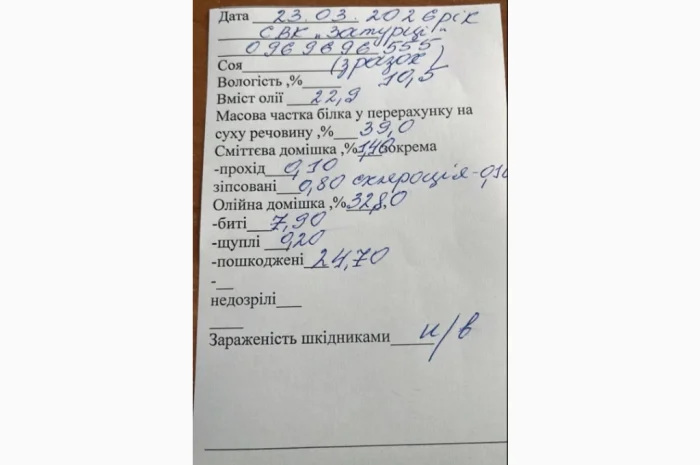 Дата 23.03.2026 рік
СВК "Затурці"
0969696555
Соя (зразок)
Вологість ,% 10,5
Вміст олії 22,9
Масова частка білка у перерахунку на
суху речовину ,% 39,0
Сміттєва домішка ,% 1,40 зокрема
-прохід 0,10
зіпсовані 0,80 склероція-0,
Олійна домішка ,% 32,80
-биті 7,90
-щуплі 0,20
-пошкоджені 24,70
-
недозрілі
Зараженість шкідниками н/в